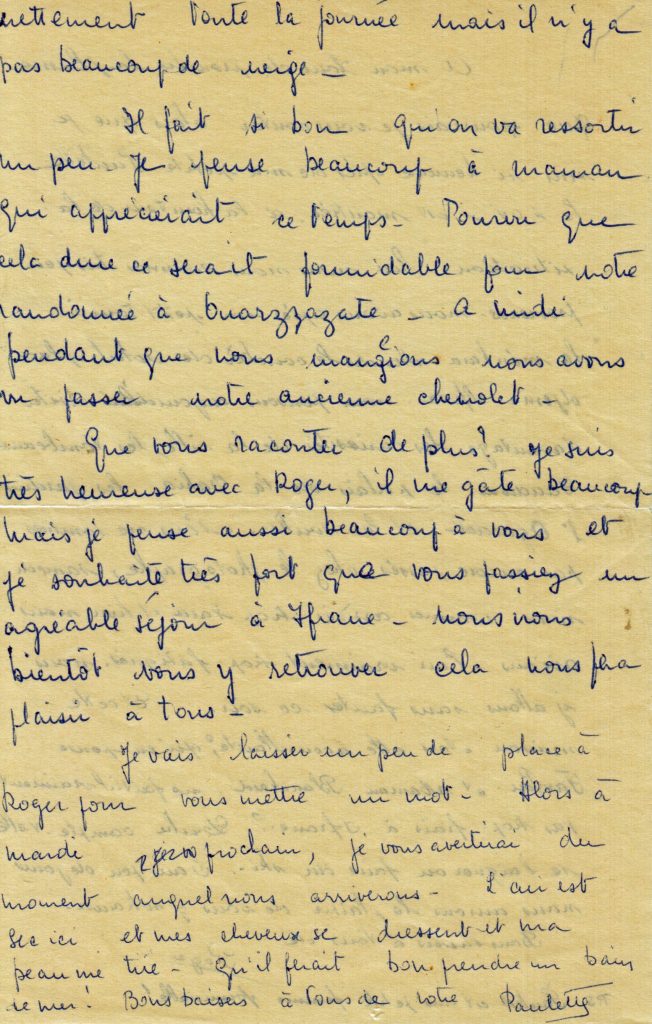 nettement toute la journée mais il n'y a
pas beaucoup de neige -
Il fait si bon qu'on va ressortir
un peu Je pense beaucoup à maman
qui apprécierait ce temps - Pourvu que
cela dure ce serait formidable pour notre
randonnée à Ouarzzazate - A midi
pendant que nous mangions nous avons
vu passer notre ancienne chevrolet -
Que vous raconter de plus? Je suis
très heureuse avec Roger, il me gâte beaucoup
mais je pense aussi beaucoup à vous et
je souhaite très fort que vous passiez un
agréable séjour à Ifrane - nous irons
bientôt vous y retrouver cela nous fera
plaisir à tous -
Je vais laisser un peu de place à
Roger pour vous mettre un mot - Alors à
mardi prochain, je vous avertirai du
moment auquel nous arriverons - L'air est
sec ici et mes cheveux se dressent et ma
peau me tire - Qu'il ferait bon prendre un bain
de mer! Bons baisers à tous de votre Paulette